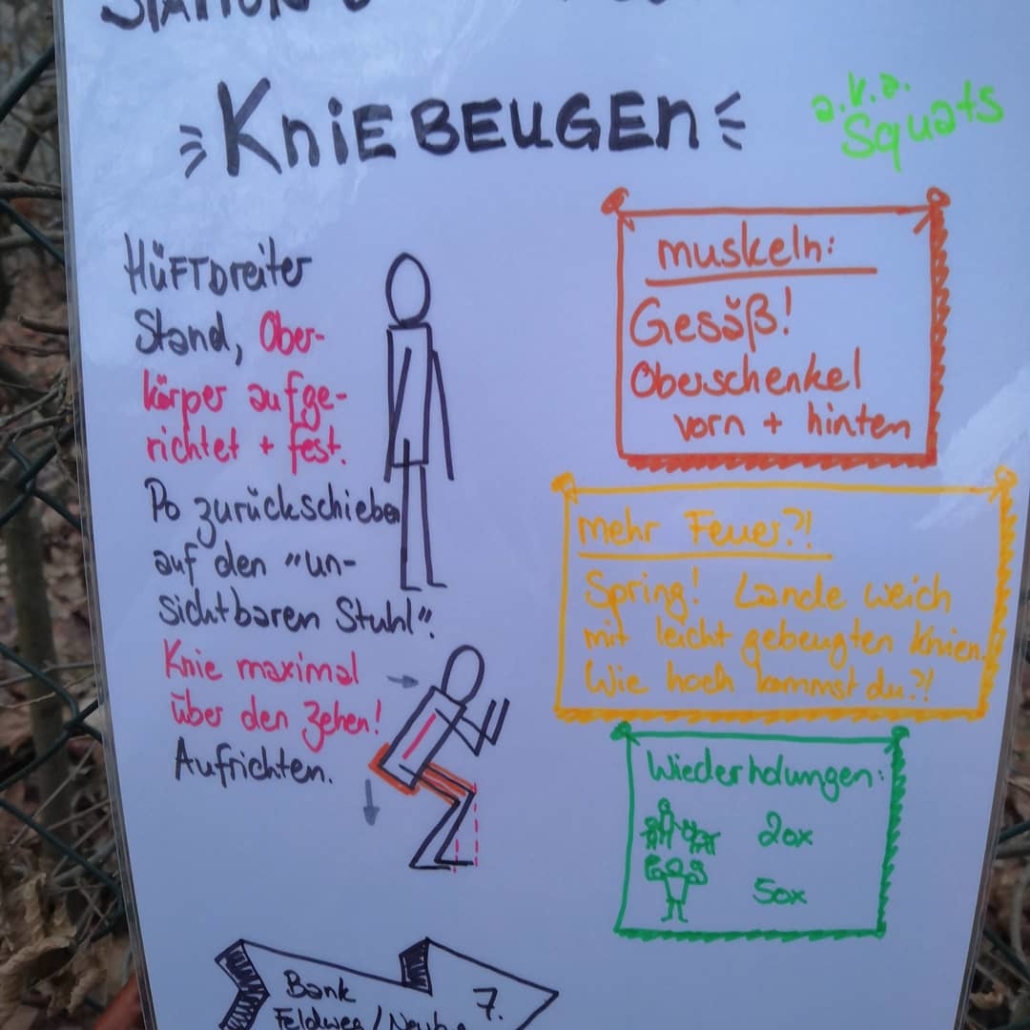 STATION
KNIEBEUGEN
a.k.a.
Squats
HÜFTbreiter
Stand, Ober-
körper aufge-
richtet + fest.
Po zurückschieben
auf den "un-
sichtbaren Stuhl".
Knie maximal
über den Zehen!
Aufrichten.
muskeln:
Gesäß!
Oberschenkel
vorn + hinten
mehr Feuer?!
Spring! Lande weich
mit leicht gebeugten Knien.
Wie hoch kommst du?!
Wiederholungen:
20x
50x
Bank
7.
Feldweg /